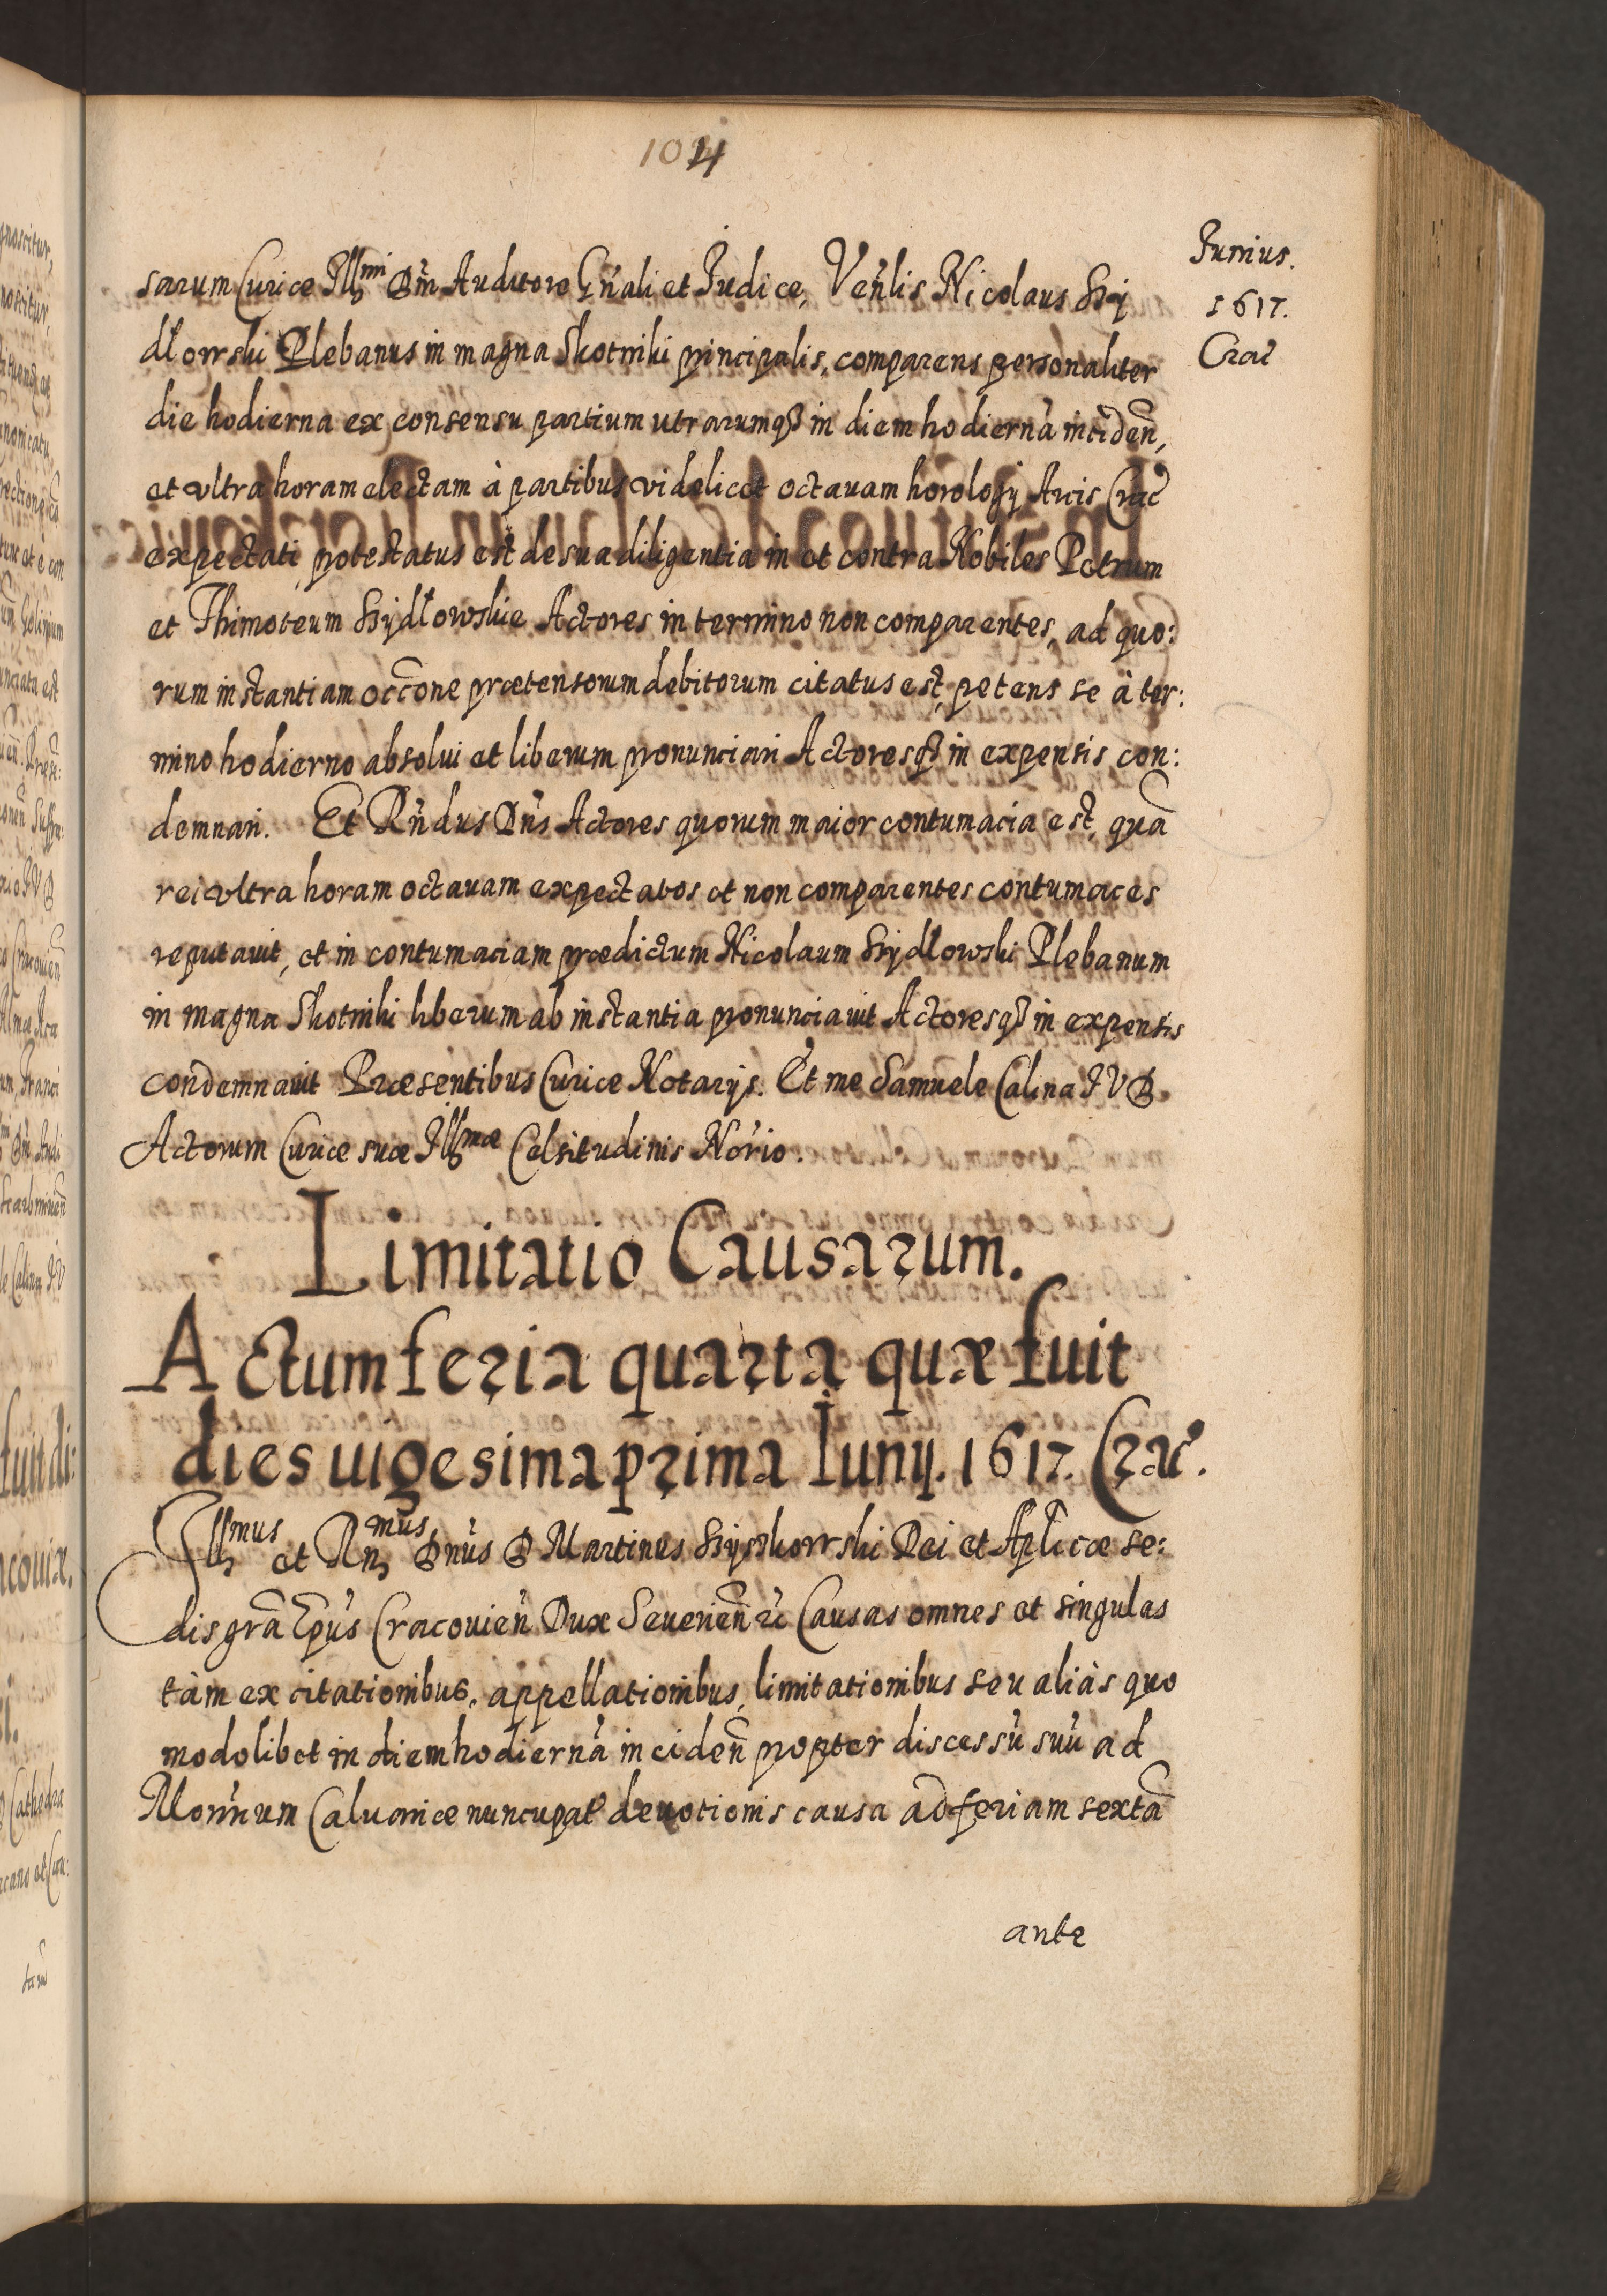 104
Junius.
1617.
Crac̃
sarum Curiæ Illmi Dñi Auditore Gñali et Judice, Veñlis Nicolaus Szy
dłowski Plebanus in magna Skotniki principalis, comparens personaliter
die hodierna ex consensu partium utrarumq₃ in diem hodiernã inciden̄,
et vltra horam electam à partibus videlicet octauam horologij Arcis Crac̃
expectati protestatus est de sua diligentia in et contra Nobiles Petrum
et Thimoteum Szydłowskie Actores in termino non comparentes, ad quo:
rum instantiam occ̄one prætensorum debitorum citatus est, petens se à ter:
mino hodierno absolui et liberum pronunciari Actoresq₃ in expensis con:
demnari. Et Rñdus Dñs Actores quorum maior contumacia est, quā
rei vltra horam octauam expectatos et non comparentes contumaces
reputauit, et in contumaciam prædictum Nicolaum Szydłowski Plebanum
in magna Skotniki liberum ab instantia pronunciauit Actoresq₃ in expensis
condemnauit Præsentibus Curiæ Notarijs. Et me Samuele Calina J V D
Actorum Curiæ suæ Illmæ Celsitudinis Nõrio.
Limitatio Causarum.
Actum feria quarta quæ fuit
dies uigesima prima Iunij. 1617. Crac̃.
Illmus et Rñmus Dñus D Martinus Szyszkowski Dei et Apl̃icæ se:
dis grā Ep̃us Cracouieñ Dux Seuerieñ &c Causas omnes et singulas
tàm ex citationibus, appellationibus, limitationibus seu aliàs quo
modolibet in diem hodiernã inciden̄ propter discessũ suũ ad
Montum Caluariæ nuncupat̃ deuotionis causa ad feriam sextā
ante